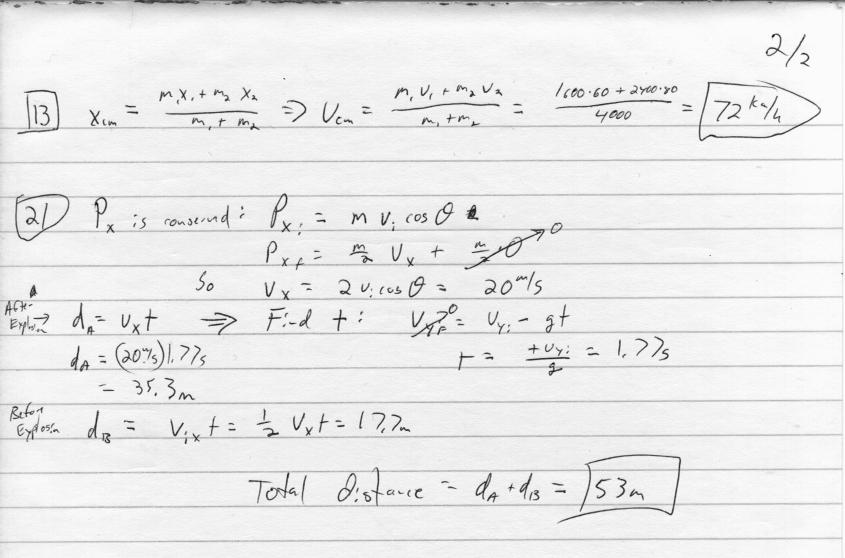 2/2
13 Xcm = m₁x₁ + m₂ x₂ / m₁ + m₂ ⇒ Vcm = m₁ v₁ + m₂ v₂ / m₁ + m₂ = 1600·60 + 2400·80 / 4000 = 72 km/h
21 Pₓ is conserved: Pxi = m vi cos θ
Pxf = m/2 Vx + m/2·0 → 0
So Vx = 2 vi cos θ = 20 m/s
After Explosion → dA = Vxt ⇒ Find t: Vyf → 0 = Vyi - gt
dA = (20 m/s) 1.77s t = +vyi / g = 1.77s
= 35.3m
Before Explosion dB = Vix t = 1/2 Vx t = 17.7m
Total distance = dA + dB = 53m